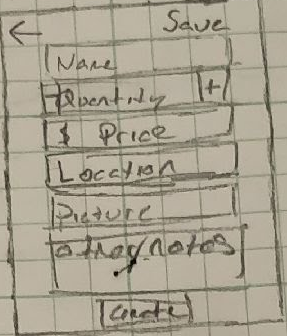 ← Save
Name
- Quantity +
$ Price
Location
Picture
other/notes
Create